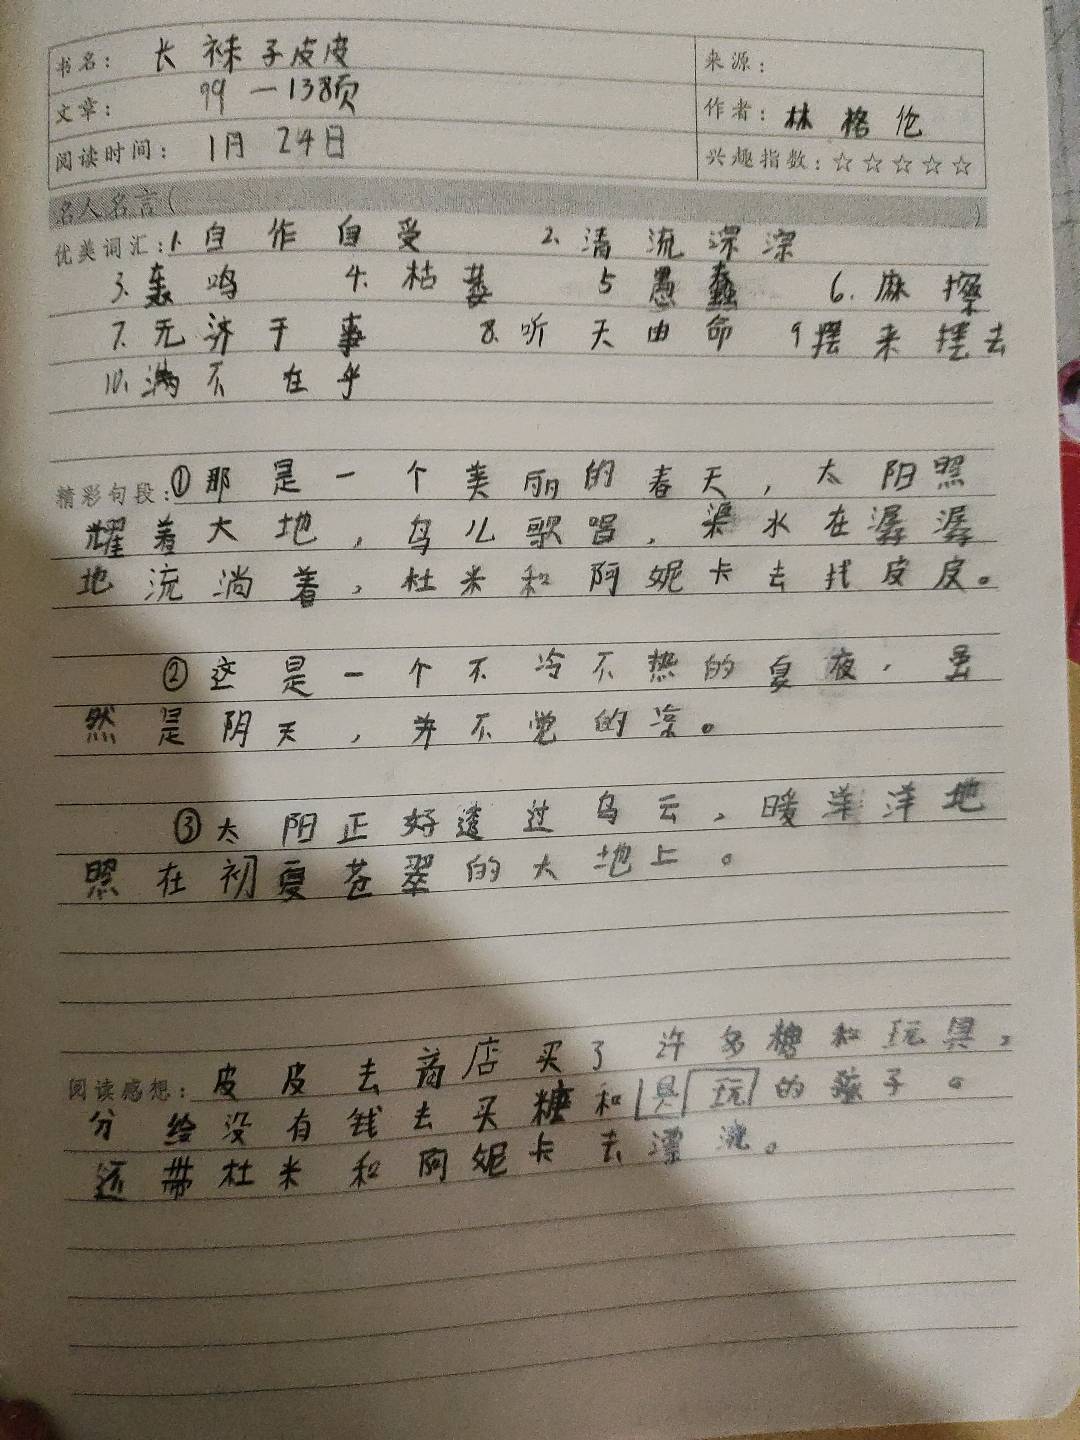 书名： 长袜子皮皮 来源：
文章： 99—138页 作者：林格伦
阅读时间： 1月24日 兴趣指数：☆☆☆☆☆
名人名言( )
优美词汇：1.自作自受 2.清流深深
3.轰鸣 4.枯萎 5愚蠢 6.麻擦
7.无济于事 8.听天由命 9摆来摆去
10.满不在乎
精彩句段：①那是一个美丽的春天，太阳照
耀着大地，鸟儿歌唱，渠水在潺潺
地流淌着，杜米和阿妮卡去找皮皮。
②这是一个不冷不热的夏夜，虽
然是阴天，并不觉的凉。
③太阳正好透过乌云，暖洋洋地
照在初夏苍翠的大地上。
阅读感想：皮皮去商店买了许多糖和玩具，
分给没有钱去买糖和具玩的孩子。
还带杜米和阿妮卡去漂流。